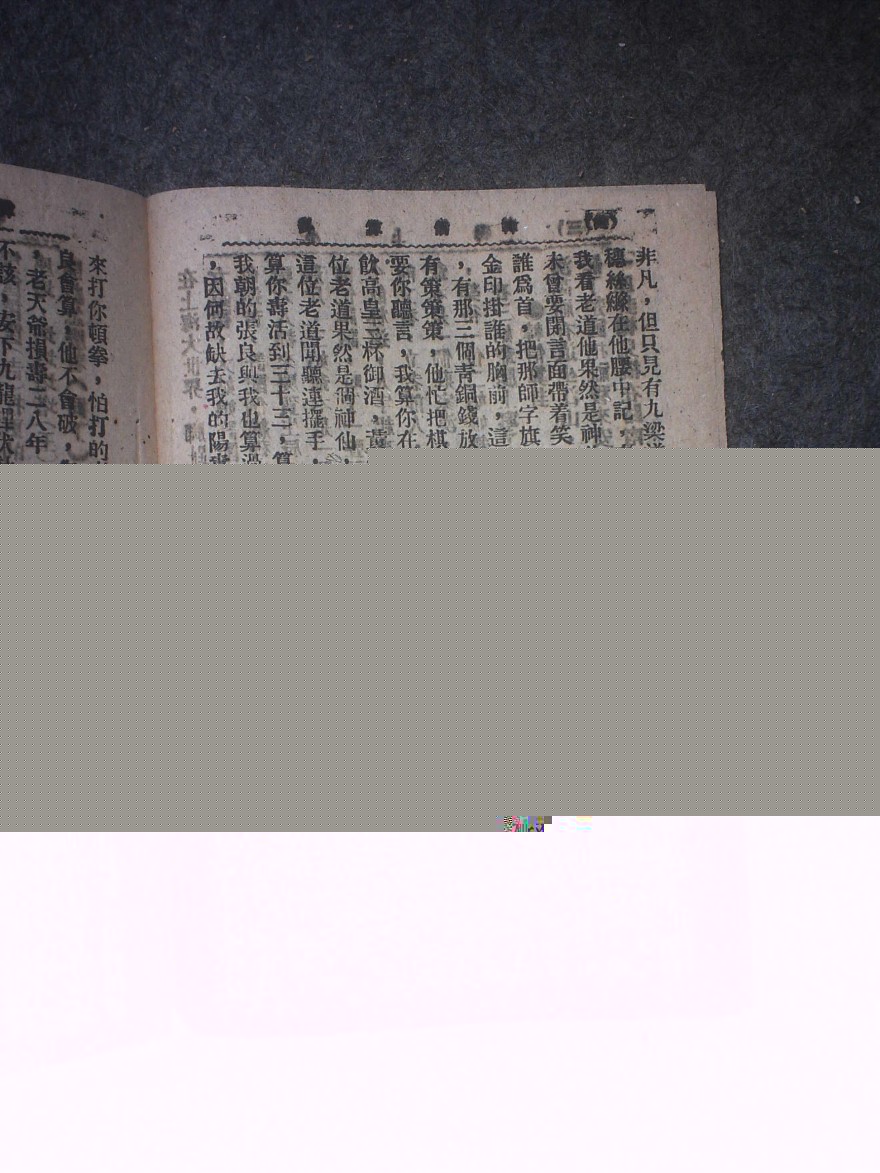 非凡，但只見有九梁
穗絲縧在他腰中記，
我看老道他果然是神
未曾要開言面帶着笑
誰爲首，把那師字旗
金印掛誰的胸前，這
，有那三個青銅錢放
有策策策，他忙把棋
要你聽言，我算你在
飲高皇三杯御酒，
位老道果然是個神仙，
這位老道聞聽連擺手，
算你壽活到三十三，算
我朝的張良與我也算過
，因何故缺去我的陽壽
來打你頓拳，怕打的
良會算，他不會破，
，老天爺損壽二八年
不該，安下九龍埋伏